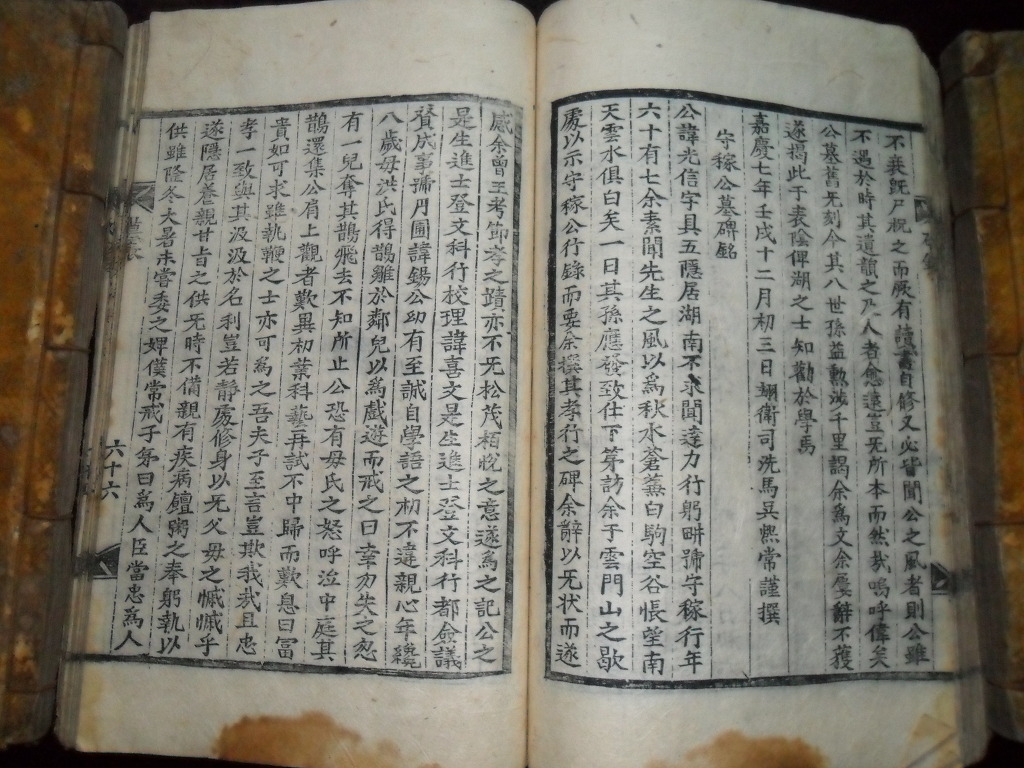 不衰旣尸祝之而厥有讀書自修又必皆聞公之風者則公雖
不遇於時其遺韻之乃人者愈遠豈旡所本而然哉嗚呼偉矣
公墓舊旡刻今其八世孫益勳涉千里謁余爲文余屢辭不獲
遂揭此于表陰俾湖之士知勸於學焉
嘉慶七年壬戌十二月初三日翊衛司洗馬吳熙常謹撰
守稼公墓碑銘
公諱光信字具五隱居湖南不求聞達力行躬畊號守稼行年
六十有七余素聞先生之風以爲秋水蒼蒹白駒空谷悵望南
天雲水俱白矣一日其孫應發致仕下第訪余于雲門山之歇
處以示守稼公行錄而要余撰其孝行之碑余辭以旡狀而遂
感余曾王考節孝之蹟亦不旡松茂栢悅之意遂爲之記公之
是生進士登文科行校理諱喜文是生進士登文科行都僉議
贊成事號月圃諱錫公幼有至誠自學語之初不違親心年纔
八歲母洪氏得鵲雛於鄰兒以爲戲遊而戒之曰幸勿失之忽
有一兒奪其鵲飛去不知所止公恐有母氏之怒呼泣中庭其
鵲還集公肩上觀者歎異初業科藝再試不中歸而歎息曰冨
貴如可求雖執鞭之士亦可爲之吾夫子至言豈欺我哉且忠
孝一致與其汲汲於名利豈若靜處修身以旡父母之慽慽乎
遂隱居養親甘旨之供旡時不備親有疾病饘粥之奉躬執以
供雖隆冬大暑未嘗委之婢僕常戒子弟曰爲人臣當忠爲人
六十六